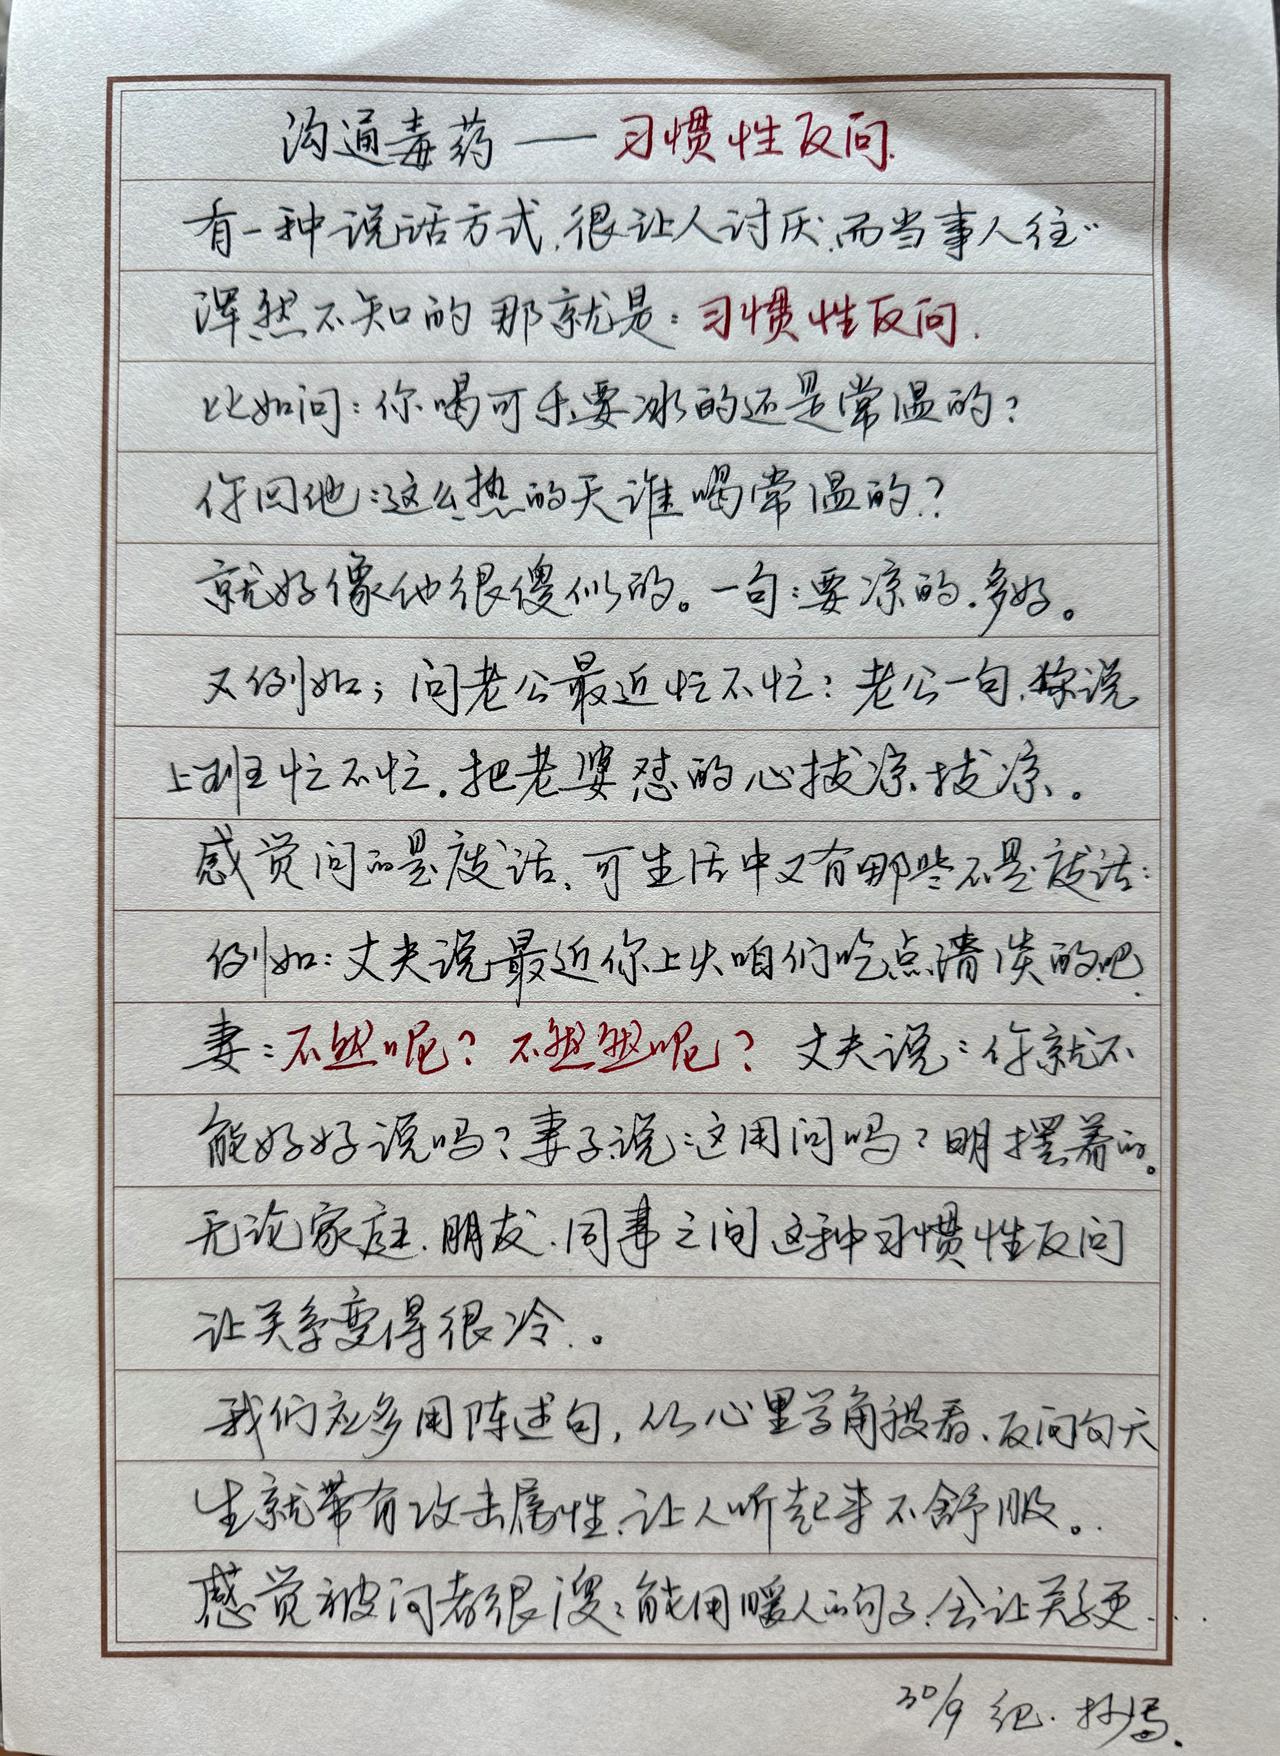 沟通毒药——习惯性反问.
有一种说话方式,很让人讨厌,而当事人往〃
浑然不知的 那就是:习惯性反问.
比如问:你喝可乐要冰的还是常温的?
你回他:这么热的天谁喝常温的?
就好像他很傻似的。一句:要凉的.多好。
又例如;问老公最近忙不忙?老公一句,你说
上班忙不忙.把老婆怼的心拔凉拔凉。
感觉问的是废话,可生活中又有那些不是废话:
例如:丈夫说最近你上火咱们吃点清淡的吧.
妻:不然呢?不然然呢?丈夫说:你就不
能好好说吗?妻子说:这用问吗?明摆着的。
无论家庭.朋友.同事之间这种习惯性反问
让关系变得很冷.。
我们应多用陈述句,从心里学角度看、反问句天
生就带有攻击属性,让人听起来不舒服。.
感觉被问者很傻;能用暖人的句子,会让关系更...
30/9 纪.抄写.